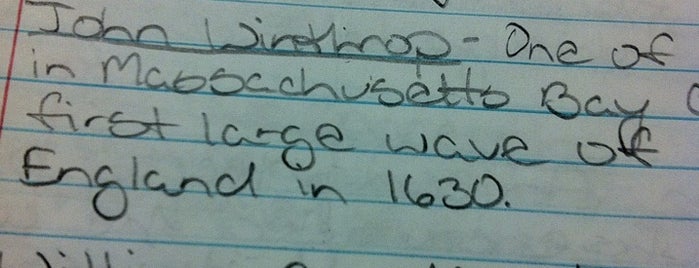 John Winthrop - One of
in Massachusetts Bay
first large wave of
England in 1630.